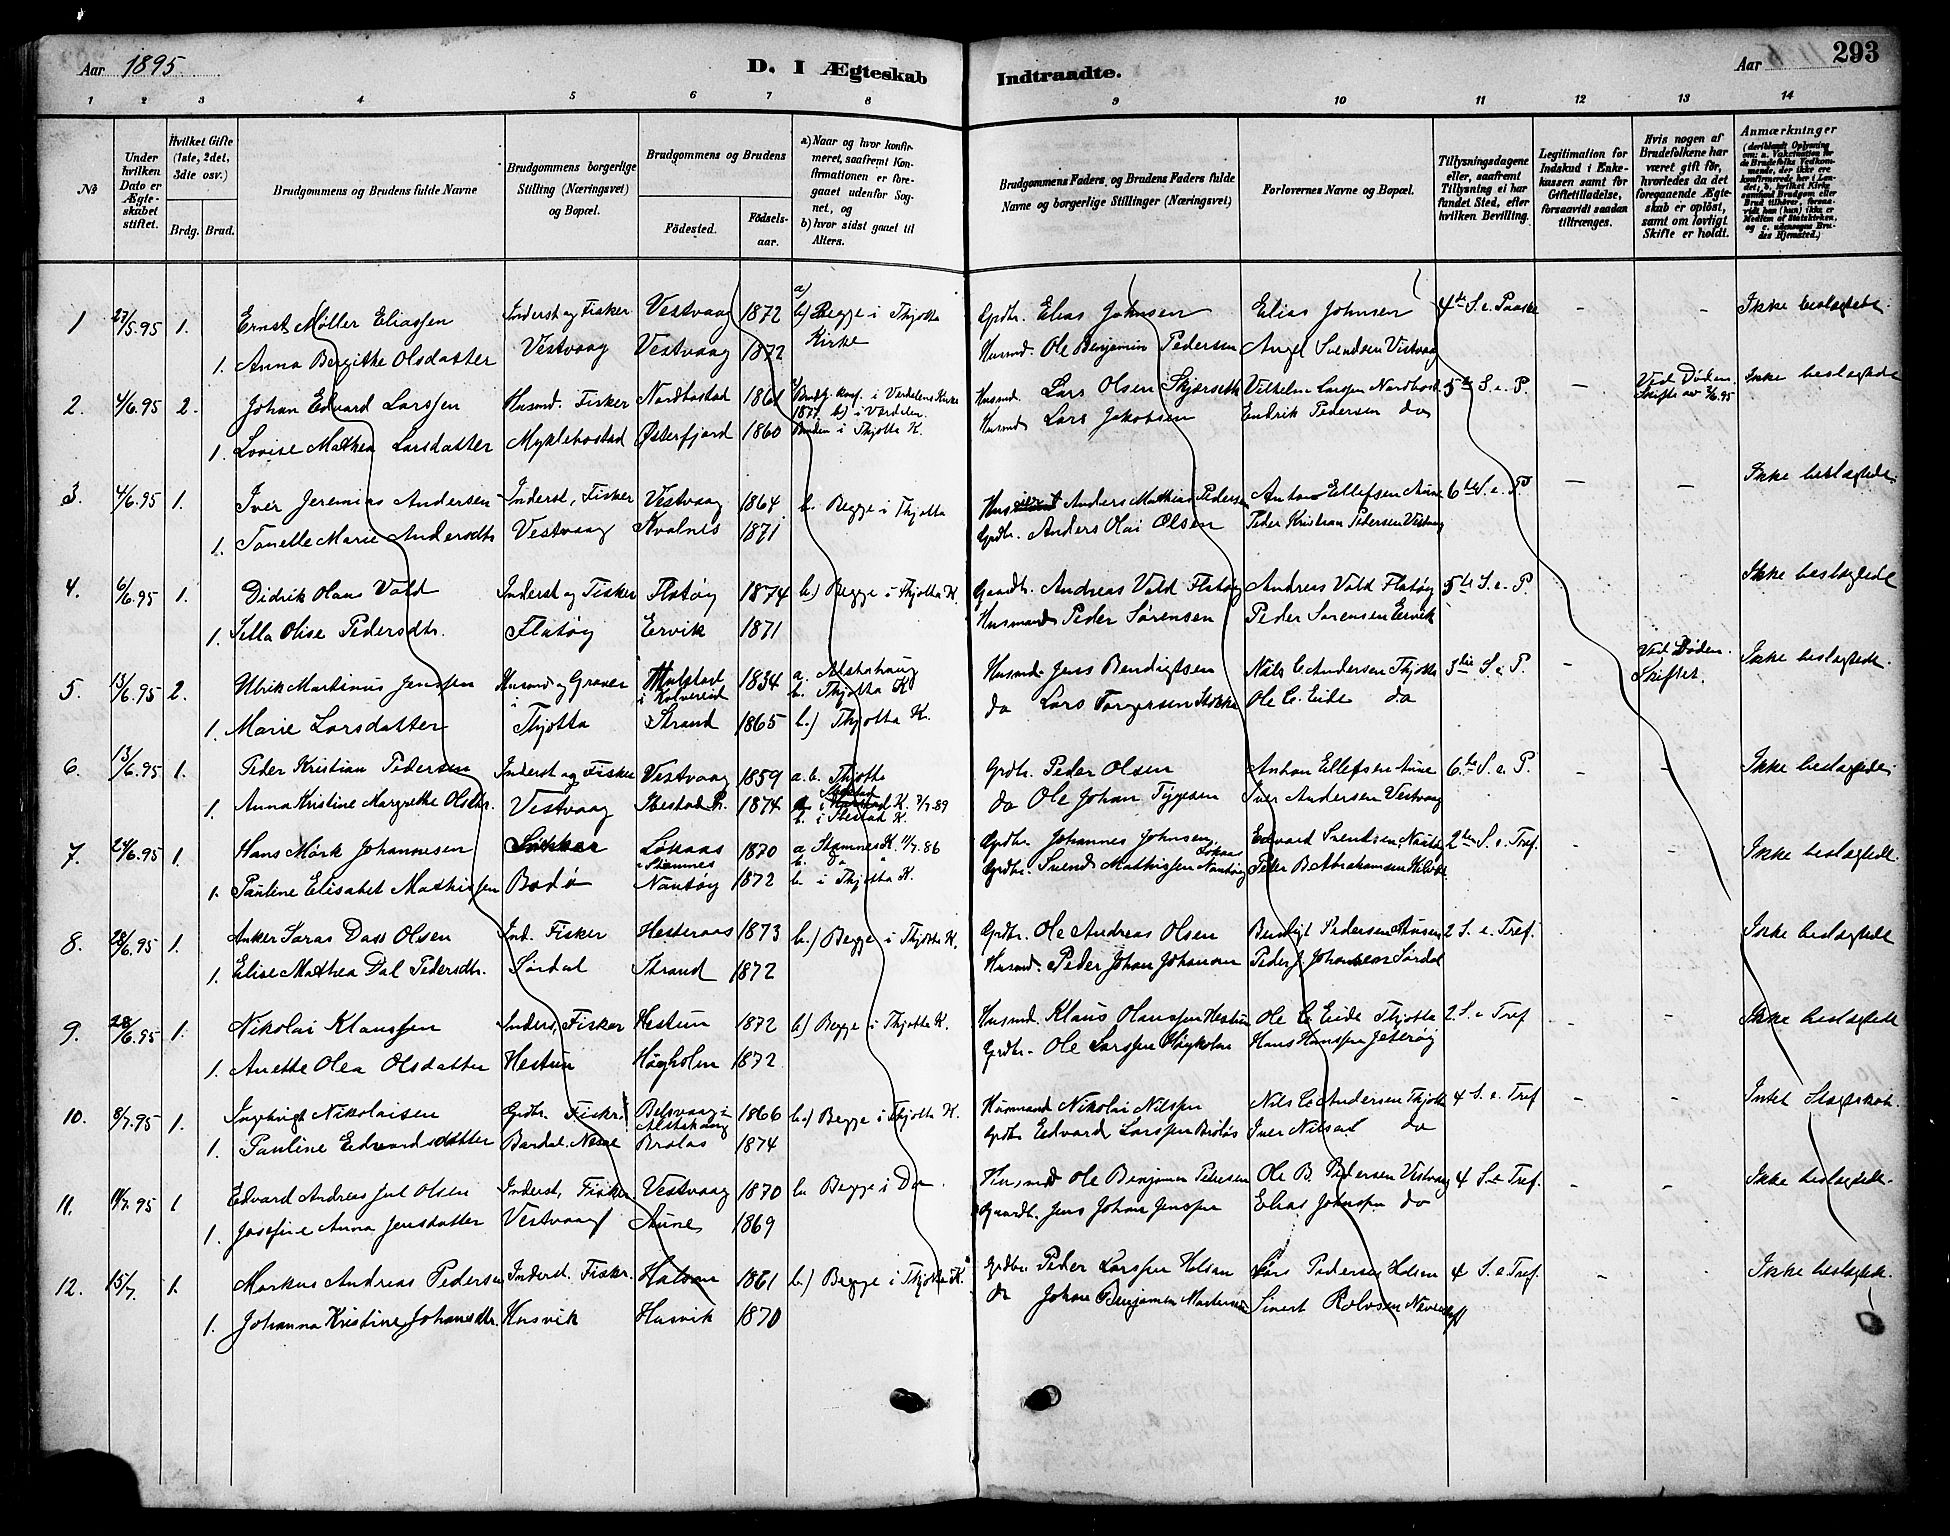 Aar 1895.
D. I Ægteskab Indtraadte.
Aar
293
1 2 3 4 5 6 7 8 9 10 11 12 13 14
No
Under hvilken Dato er Ægteskabet stiftet.
Hvilket Gifte (1ste, 2det, 3die osv.)
Brdg. Brud.
Brudgommens og Brudens fulde Navne
Brudgommens borgerlige Stilling (Næringsvei) og Bopæl.
Brudgommens og Brudens
Födested.
Födselsaar.
a) Naar og hvor konfirmeret, saafremt Konfirmationen er foregaaet udenfor Sognet, og
b) hvor sidst gaaet til Alters.
Brudgommens Faders og Brudens Faders fulde Navne og borgerlige Stillinger (Næringsvei)
Forlovernes Navne og Bopæl.
Tillysningsdagene eller, saafremt Tillysning ei har fundet Sted, efter hvilken Bevilling.
Legitimation for Indskud i Enkekassen samt for Giftetilladelse, forsaavidt saadan tiltrænges.
Hvis nogen af Brudefolkene har været gift før, hvorledes da det foregaaende Ægteskab er opløst, samt om lovligt Skifte er holdt.
Anmærkninger (deriblandt Oplysning om: a. Vakcination for de Brudefolks Vedkommende, der ikke ere konfirmerede her i Landet, b. hvilket Kirkesamfund Brudgom eller Brud tilhører, forsaavidt han (hun) ikke er Medlem af Statskirken, og c. udensogns Brudes Hjemsted.)
1 27/5.95 1. Ernst Møller Eliassen Inderst og Fisker Vestvaag 1872 a) b) Begge i Thjotta Kirke Grdbr. Elias Johnsen Elias Johnsen 4de S. e. Paaske - - Ikke beslægtede
1. Anna Bergitte Olsdatter Vestvaag Vestvaag 1872 Husmd. Ole Benjamin Pedersen Angel Svendsen Vestvaag
2. 4/6.95 2. Johan Edvard Larssen Husmd. Fisker Nordbostad 1861 Brudg. konf. i Værdalens Kirke 1877 b) i Værdalen. Husmd. Lars Olsen Skjørseth Vilhelm Larssen Nordbost. 5te S. e. P. - Ved Døden. Skifte av 3/6.95 Ikke beslægtede
1. Lovise Mathea Larsdatter Myklebostad Østerfjord 1860 Bruden i Thjotta K. Husmd. Lars Jakobsen Endrik Pedersen do
3. 4/6.95 1. Iver Jeremias Andersen Inderst, Fisker Vestvaag 1864 b. Begge i Thjotta Anders Mathias Pedersen Anton Ellefsen Aune 6te S. e. P. - - Ikke beslægtede
1. Tonelle Marie Andersdtr Vestvaag Kvalnes 1871 Grdbr. Anders Olai Olsen Peder Kristian Pedersen Vestvaag
4. 6/6.95 1. Didrik Olaus Vold Inderst og Fisker Flatøy 1874 b.) Begge i Thjotta K. Gaardbr. Andreas Vold Flatøy Andreas Vold Flatøy 5te S. e. P. Ikke beslægtede
1. Silla Olise Pedersdtr. Flatøy Eervik 1871 Husmand Peder Sørensen Peder Sørensen Eervik
5. 13/6.95 2. Ulrik Martinus Jenssen Husmd og Graver i Kolvereid 1834 a. Alstahaug b. Thjotta K Husmd. Jens Bendigtsen Nils C. Andersen Thjotta 3die S. e. P. - Ved Døden. Skiftet. Ikke beslægtede.
1. Marie Larsdatter Thjotta Strand 1865 b.) Thjotta K. do Lars Torgersen Stokka Ole C. Eide do
6. 13/6.95 1. Peder Kristian Pedersen Inderst og Fisker Vestvaag 1859 a. b. Thjotta Grdbr. Peder Olsen Anton Ellefsen Aune 6te S. e. P. - - Ikke beslægtede
1. Anna Kristine Margrethe Olsdtr. Vestvaag Ibestad 1874 K. 7/7.89 b. i Ibestad K. do Ole Johan Tygesen Iver Andersen Vestvaag
7. 24/6.95 1. Hans Mørk Johannesen Løkaas Stamnes 1870 a Stamnes K. 11/7.86 b. Do Grdbr. Johannes Johnsen Løkaas Edvard Svendsen Nautøy 2den S. e. Tref. Ikke beslægtede.
1. Pauline Elisabet Mathissen Bodø Nautøy 1872 b. i Thjotta K. Grdbr. Svend Mathissen Nautøy Peder B. Abrahamsen
8. 28/6.95 1. Anker Saras Dass Olsen Ind. Fisker Hesteraas 1873 b.) Begge i Thjotta K. Grdbr. Ole Andreas Olsen Bendigt Pedersen 2 S. e. Tref. Ikke beslægtede
1. Elise Mathea Dal Pedersdtr. Sørdal Strand 1872 Husmd. Peder Johan Johansen Peder J. Johansen Sørdal
9. 28/6.95 1. Nikolai Klaussen Inders, Fisker Hestun 1872 b) Begge i Thjotta K. Husmd. Klaus Olaussen Hestun Ole C. Eide Thjotta 2. S. e Tref - - Ikke beslægtede
1. Anette Olea Olsdatter Hestun Høyholm 1872 Grdbr. Ole Larssen Høyholm Hans Hanssen
10. 8/7.95 1. Ingebrigt Nikolaisen Grdbr. Fisker Belsvaag i Alstahaug 1866 b.) Begge i Thjotta K. Husmand Nikolai Nilssen Nils C. Andersen Thjotta 4 S. e. Tref - - Intet Slægtskab.
1. Pauline Edvardsdatter Bardal Brolas 1874 Grdbr Edvard Larssen Brolas Iver Nilsen do
11. 14/7.95 1 Edvard Andreas Jul Olsen Inderst, Fisker Vestvaag 1870 b. Begge i Do. Husmd Ole Benjamin Pedersen Ole B. Pedersen Vestvaag 4 S. e Tref. - - Ikke beslægtede.
1. Josefine Anna Jensdatter Vestvaag Aune 1869 Gaardb. Jens Johan Jenssen Elias Johnsen do
12. 15/7. 1. Markus Andreas Pedersen Inderst. Fisker. 1861 b.) Begge i Thjotta K. Grdbr. Peder Larssen Lars Pedersen 4 S. e Tref. - Ikke beslægtede.
1. Johanna Kristine Johansdtr. Husvik Husvik 1870 do Johan Benjamin Sivert Rolvsen